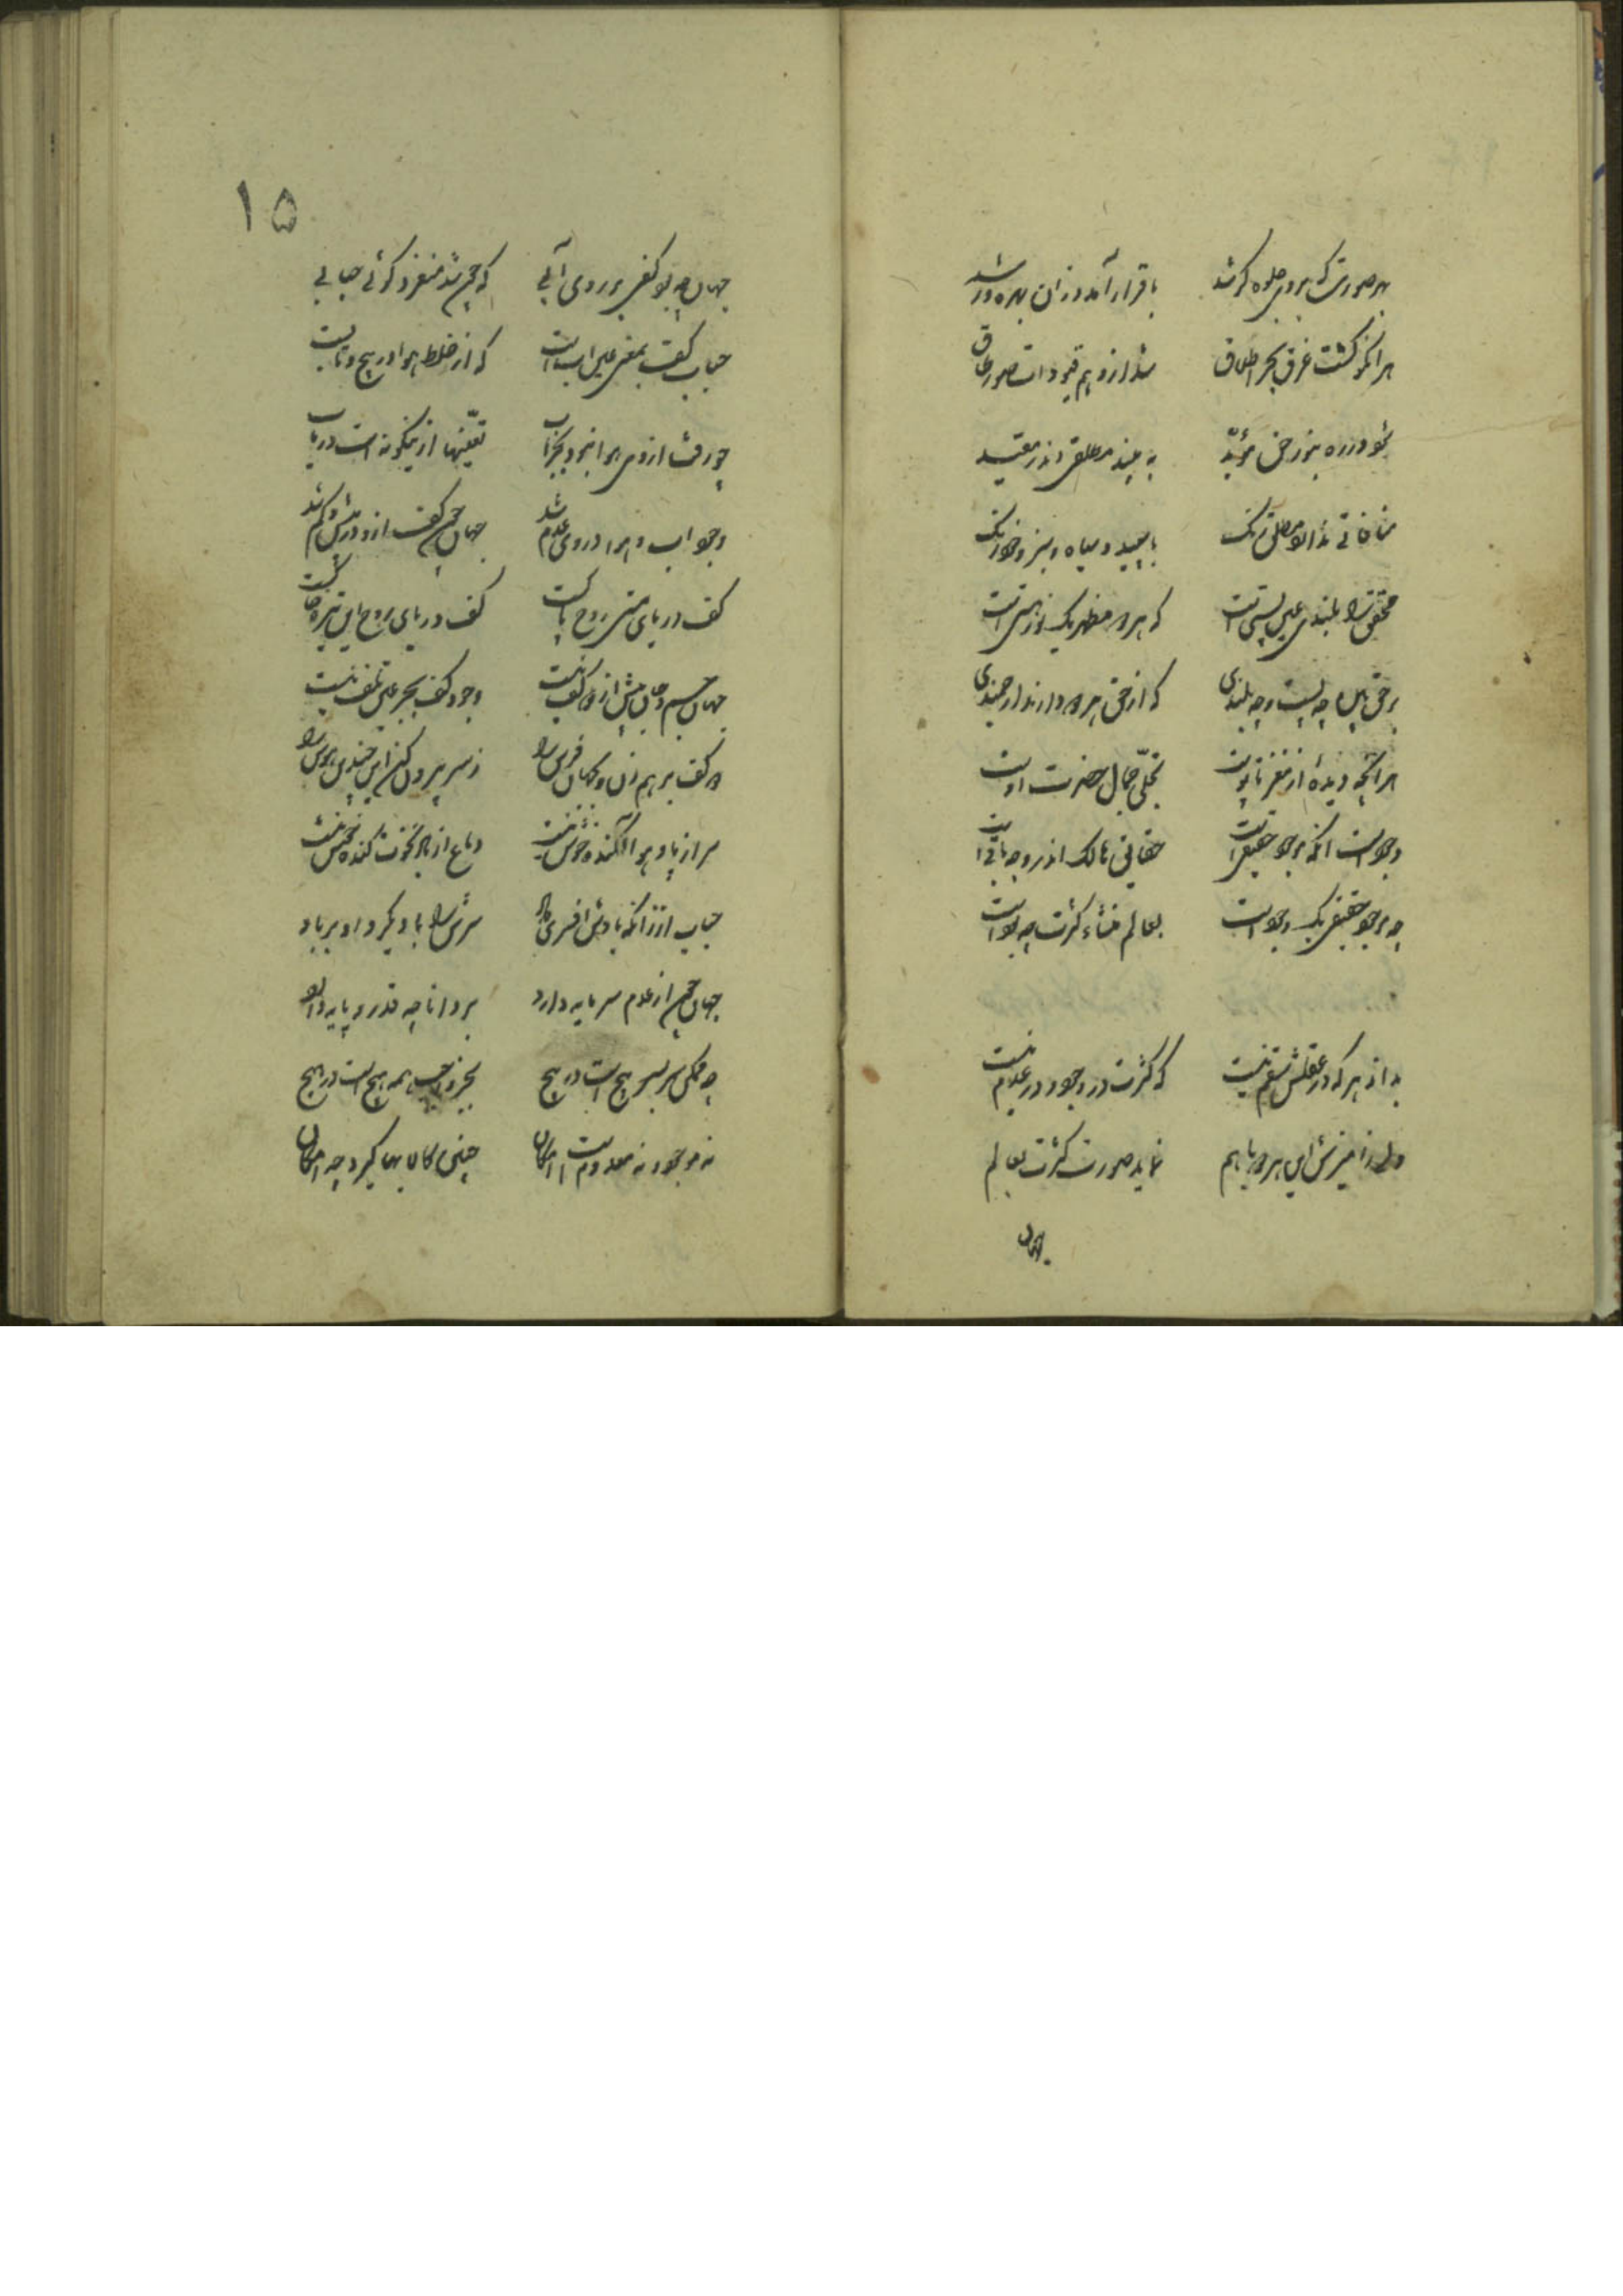 بهر صورت که بروی جلوه کر شد باقرار آمد و زان بهره ور شد
هر انکو کشت غرق بحر اطلاق شد ازوهم قیودات صور طاق
شود در ره بنور حق مؤید به بیند مطلق اندر مقید
منافاتی نداند مطلق رنک باسپید و سیاه و سبز و خوذرنک
محقق را بلندی عین پستی است که هر دو مظهر یک نور هستی است
بر حق بین چه پست و چه بلندی که از حق هر دو دارند ارجمندی
هر انچه دیدهٔ از مغز تا پوست تجلّی جمال حضرت اوست
وجود است انکه موجود حقیقی است حقایق هالک اندر وجه باقی است
چه موجود حقیقی یک وجود است بعالم منشاء کثرت چه بود است
بداند هر که در عقلش سقم نیست که کثرت در وجود و در عدم نیست
ولی ز امیزش این هر دو با هم نماید صورت کثرت بعالم
جهان
۱۵
جهان چه بود کفی بر روی آبی که چون شد منفرد کوئی حبابی
حباب کف بمعنی عین اب است که از خلط هوا در پیچ و تاب است
چو رفت از وی هوا نبود بجز اب تعیّنها ازینکونه است دریاب
وجود اب و هوا در وی عدم شد جهان چون کف ازو در بیش و کم شد
کف دریای هستی روح پاکست کف دریای روح این تیره خاکست
جهان جسم و جان بیش از دو کف نیست وجود کف بجز عین تلف نیست
دو کف بر هم زن و بکهان فرس را ز سر بیرون کن این چندین هوس را
سر از باد هوا آکنده خوش نیست دماغ از باد نخوت کنده خوش نیست
حباب ازانکه بادش افسری داد سرش را باد بکرد و داد بر باد
جهان چون از عدم سرمایه دارد بر دانا چه قدر و پایه دارد
چه ممکن سر بسر هیچ است در هیچ بجز واجب همه هیچ است در هیچ
نه موجود نه معدوم است امکان چنین کالا بها کیرد چه امکان